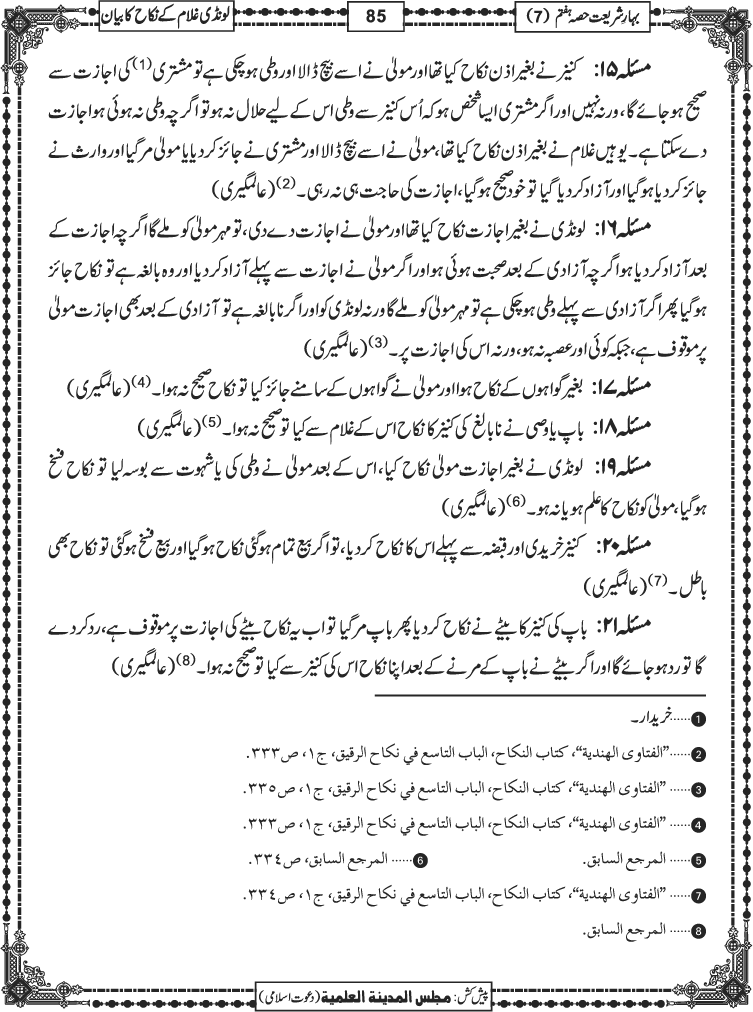 بہارِ شریعت حصہ ہفتم (7)
85
لونڈی غلام کے نکاح کا بیان
مسئلہ ۱۵: کنیز نے بغیر اذن نکاح کیا تھا اور مولیٰ نے اسے بیچ ڈالا اور وطی ہوچکی ہے تو مشتری (1) کی اجازت سے
صحیح ہو جائے گا، ورنہ نہیں اور اگر مشتری ایسا شخص ہو کہ اُس کنیز سے وطی اس کے لیے حلال نہ ہو تو اگرچہ وطی نہ ہوئی ہو اجازت
دے سکتا ہے۔ یوہیں غلام نے بغیر اذن نکاح کیا تھا، مولیٰ نے اسے بیچ ڈالا اور مشتری نے جائز کر دیا یا مولیٰ مر گیا اور وارث نے
جائز کر دیا ہو گیا اور آزاد کر دیا گیا تو خود صحیح ہو گیا، اجازت کی حاجت ہی نہ رہی۔ (2) (عالمگیری)
مسئلہ ۱۶: لونڈی نے بغیر اجازت نکاح کیا تھا اور مولیٰ نے اجازت دے دی، تو مہر مولیٰ کو ملے گا اگرچہ اجازت کے
بعد آزاد کر دیا ہو اگرچہ آزادی کے بعد صحبت ہوئی ہو اور اگر مولیٰ نے اجازت سے پہلے آزاد کر دیا اور وہ بالغہ ہے تو نکاح جائز
ہو گیا پھر اگر آزادی سے پہلے وطی ہوچکی ہے تو مہر مولیٰ کو ملے گا ورنہ لونڈی کو اور اگر نابالغہ ہے تو آزادی کے بعد بھی اجازت مولیٰ
پر موقوف ہے، جبکہ کوئی اور عصبہ نہ ہو، ورنہ اس کی اجازت پر۔ (3) (عالمگیری)
مسئلہ ۱۷: بغیر گواہوں کے نکاح ہوا اور مولیٰ نے گواہوں کے سامنے جائز کیا تو نکاح صحیح نہ ہوا۔ (4) (عالمگیری)
مسئلہ ۱۸: باپ یا وصی نے نابالغ کی کنیز کا نکاح اس کے غلام سے کیا تو صحیح نہ ہوا۔ (5) (عالمگیری)
مسئلہ ۱۹: لونڈی نے بغیر اجازت مولیٰ نکاح کیا، اس کے بعد مولیٰ نے وطی کی یا شہوت سے بوسہ لیا تو نکاح فسخ
ہو گیا، مولیٰ کو نکاح کا علم ہو یا نہ ہو۔ (6) (عالمگیری)
مسئلہ ۲۰: کنیز خریدی اور قبضہ سے پہلے اس کا نکاح کر دیا، تو اگر بیع تمام ہو گئی نکاح ہو گیا اور بیع فسخ ہو گئی تو نکاح بھی
باطل۔ (7) (عالمگیری)
مسئلہ ۲۱: باپ کی کنیز کا بیٹے نے نکاح کر دیا پھر باپ مر گیا تو اب یہ نکاح بیٹے کی اجازت پر موقوف ہے، رد کر دے
گا تو رد ہو جائے گا اور اگر بیٹے نے باپ کے مرنے کے بعد اپنا نکاح اس کی کنیز سے کیا تو صحیح نہ ہوا۔ (8) (عالمگیری)
1 ......خریدار۔
2 ......"الفتاوى الهندية"، كتاب النكاح، الباب التاسع في نكاح الرقيق، ج١، ص٣٣٣.
3 ...... "الفتاوى الهندية"، كتاب النكاح، الباب التاسع في نكاح الرقيق، ج١، ص٣٣٥.
4 ...... "الفتاوى الهندية"، كتاب النكاح، الباب التاسع في نكاح الرقيق، ج١، ص٣٣٣.
5 ...... المرجع السابق. 6 ...... المرجع السابق، ص٣٣٤.
7 ...... "الفتاوى الهندية"، كتاب النكاح، الباب التاسع في نكاح الرقيق، ج١، ص٣٣٤.
8 ...... المرجع السابق.
پیش کش: مجلس المدينة العلمية (دعوت اسلامی)